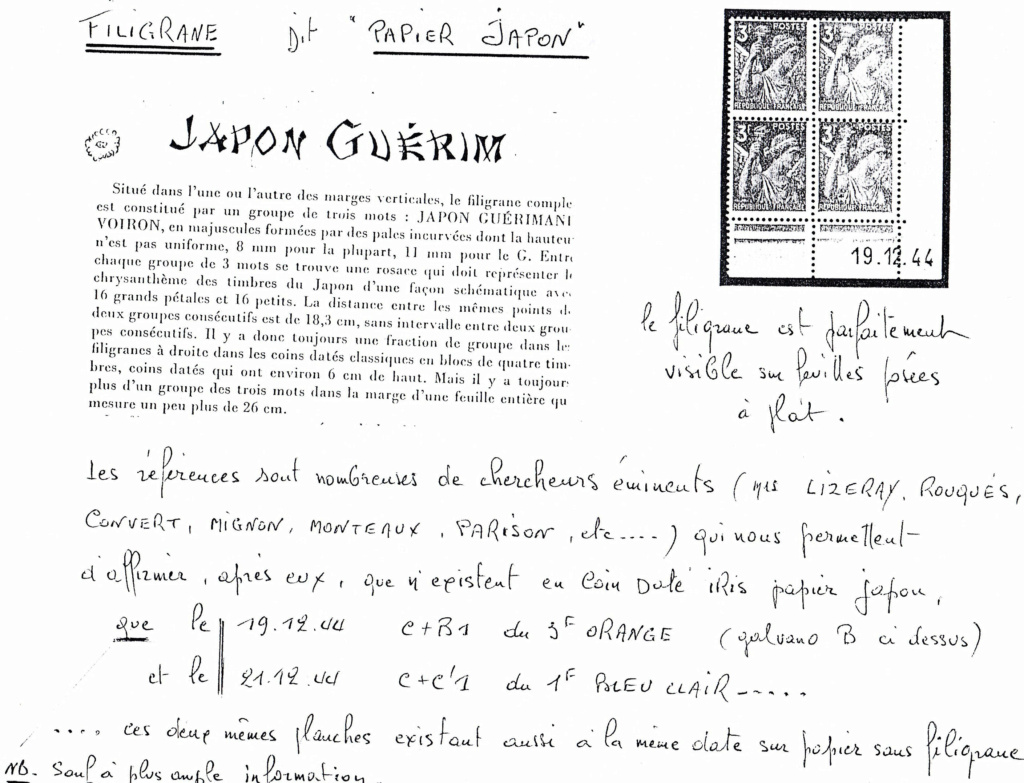 FILIGRANE dit "PAPIER JAPON"
JAPON GUÉRIM
Situé dans l'une ou l'autre des marges verticales, le filigrane comple
est constitué par un groupe de trois mots : JAPON GUÉRIMANI
VOIRON, en majuscules formées par des pales incurvées dont la hauteu
n'est pas uniforme, 8 mm pour la plupart, 11 mm pour le G. Entre
chaque groupe de 3 mots se trouve une rosace qui doit représenter le
chrysanthème des timbres du Japon d'une façon schématique avec
16 grands pétales et 16 petits. La distance entre les mêmes points d
deux groupes consécutifs est de 18,3 cm, sans intervalle entre deux grou
pes consécutifs. Il y a donc toujours une fraction de groupe dans les
filigranes à droite dans les coins datés classiques en blocs de quatre tim-
bres, coins datés qui ont environ 6 cm de haut. Mais il y a toujours
plus d'un groupe des trois mots dans la marge d'une feuille entière qu
mesure un peu plus de 26 cm.
3F POSTES 3F POSTES
RÉPUBLIQUE FRANÇAISE RÉPUBLIQUE FRANÇAISE
3F POSTES 3F POSTES
RÉPUBLIQUE FRANÇAISE RÉPUBLIQUE FRANÇAISE
19.12.44
le filigrane est parfaitement
visible sur feuilles posées
à plat.
Les références sont nombreuses de chercheurs éminents (Mrs LIZERAY, ROUQUÉS,
CONVERT, MIGNON, MONTEAUX, PARISON, etc....) qui nous permettent
d'affirmer, après eux, que n'existent en Coin Daté iRis papier japon,
que le 19.12.44 C+B1 du 3F ORANGE (galvano B ci dessus)
et le 21.12.44 C+C'1 du 1F BLEU CLAIR.....
.... ces deux mêmes planches existant aussi à la même date sur papier sans filigrane
NB. Sauf à plus ample information.